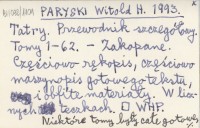 PARYSKI Witold H. 1993.
Tatry. Przewodnik szczegółowy.
Tomy 1-62. - Zakopane.
Częściowo rękopis, częściowo
maszynopis gotowego tekstu,
i obfite materiały. W licz-
nych teczkach. □ WHP.
Niektóre tomy były całe gotowe,